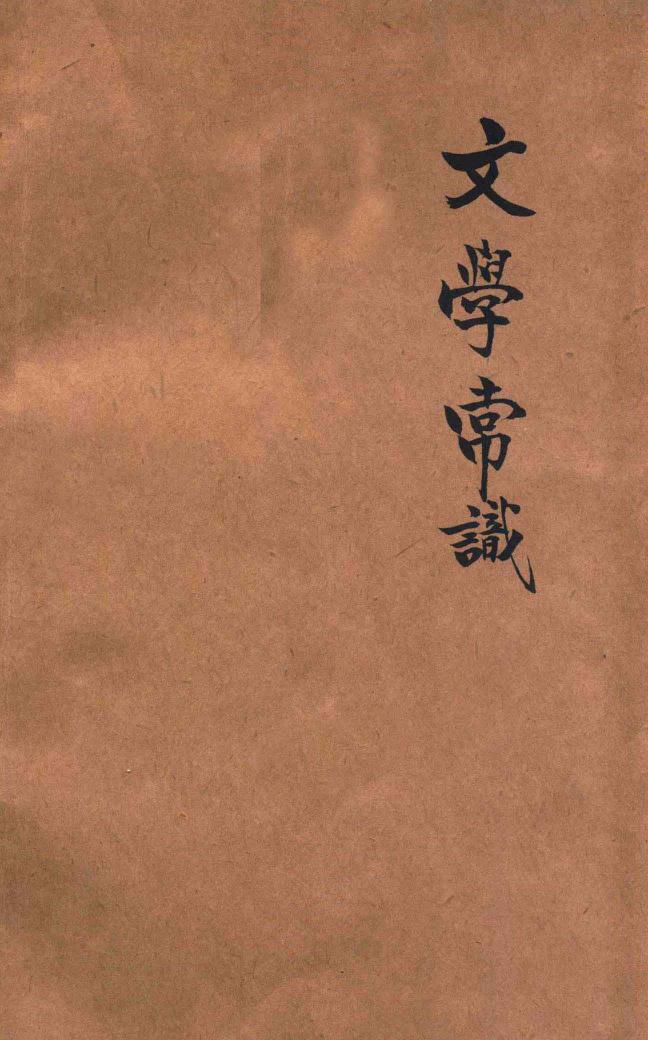 文學常識